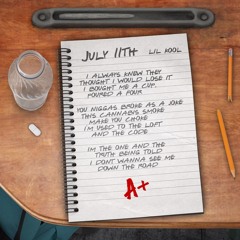 JULY 11TH
LIL KOOL
I ALWAYS KNEW THEY
THOUGHT I WOULD LOSE IT
I BOUGHT ME A CUP
POURED A FOUR
YOU NIGGAS BROKE AS A JOKE
THIS CANNABIS SMOKE
MAKE YOU CHOKE
I'M USED TO THE LOFT
AND THE CODE
IM THE ONE AND THE
TRUTH BEING TOLD
I DONT WANNA SEE ME
DOWN THE ROAD
A+